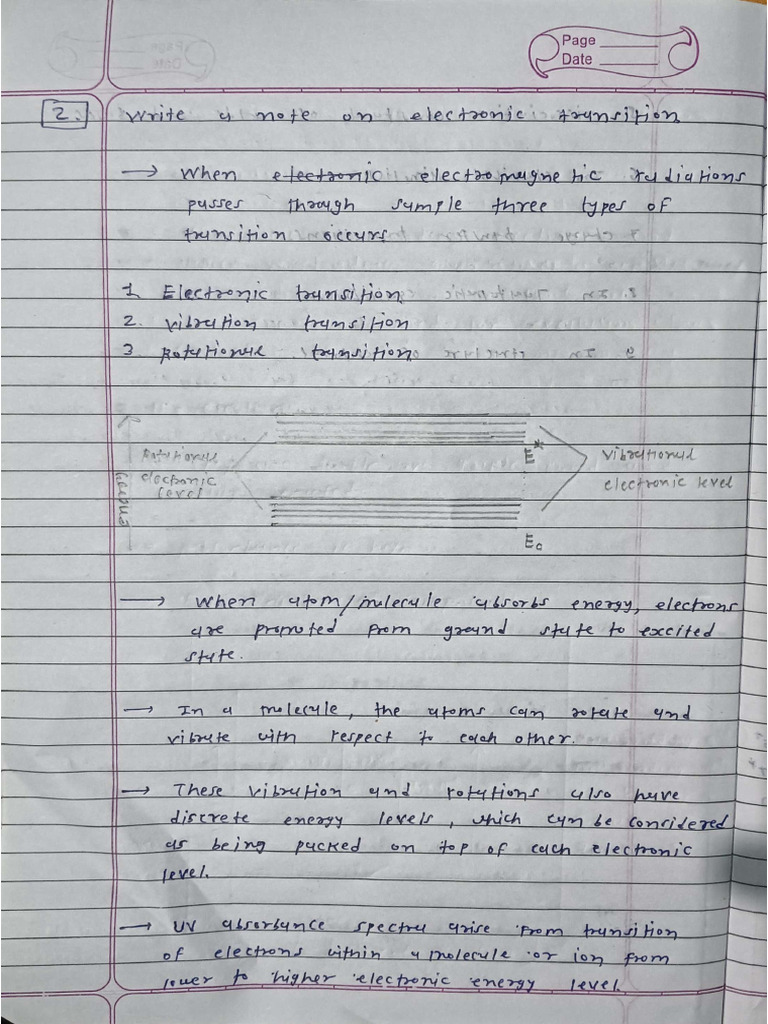 Page
Date
2. Write a note on electronic transition
→ When electronic electromagnetic radiations
passes through sample three types of
transition occurs
1. Electronic transition
2. vibration transition
3. Rotational transition
Rotational
electronic
level
energy
E*
Vibrational
electronic level
E₀
→ When atom/molecule absorbs energy, electrons
are promoted from ground state to excited
state.
→ In a molecule, the atoms can rotate and
vibrate with respect to each other.
→ These vibration and rotations also have
discrete energy levels, which can be considered
as being packed on top of each electronic
level.
→ UV absorbance spectra arise from transition
of electrons within a molecule or ion from
lower to higher electronic energy level.